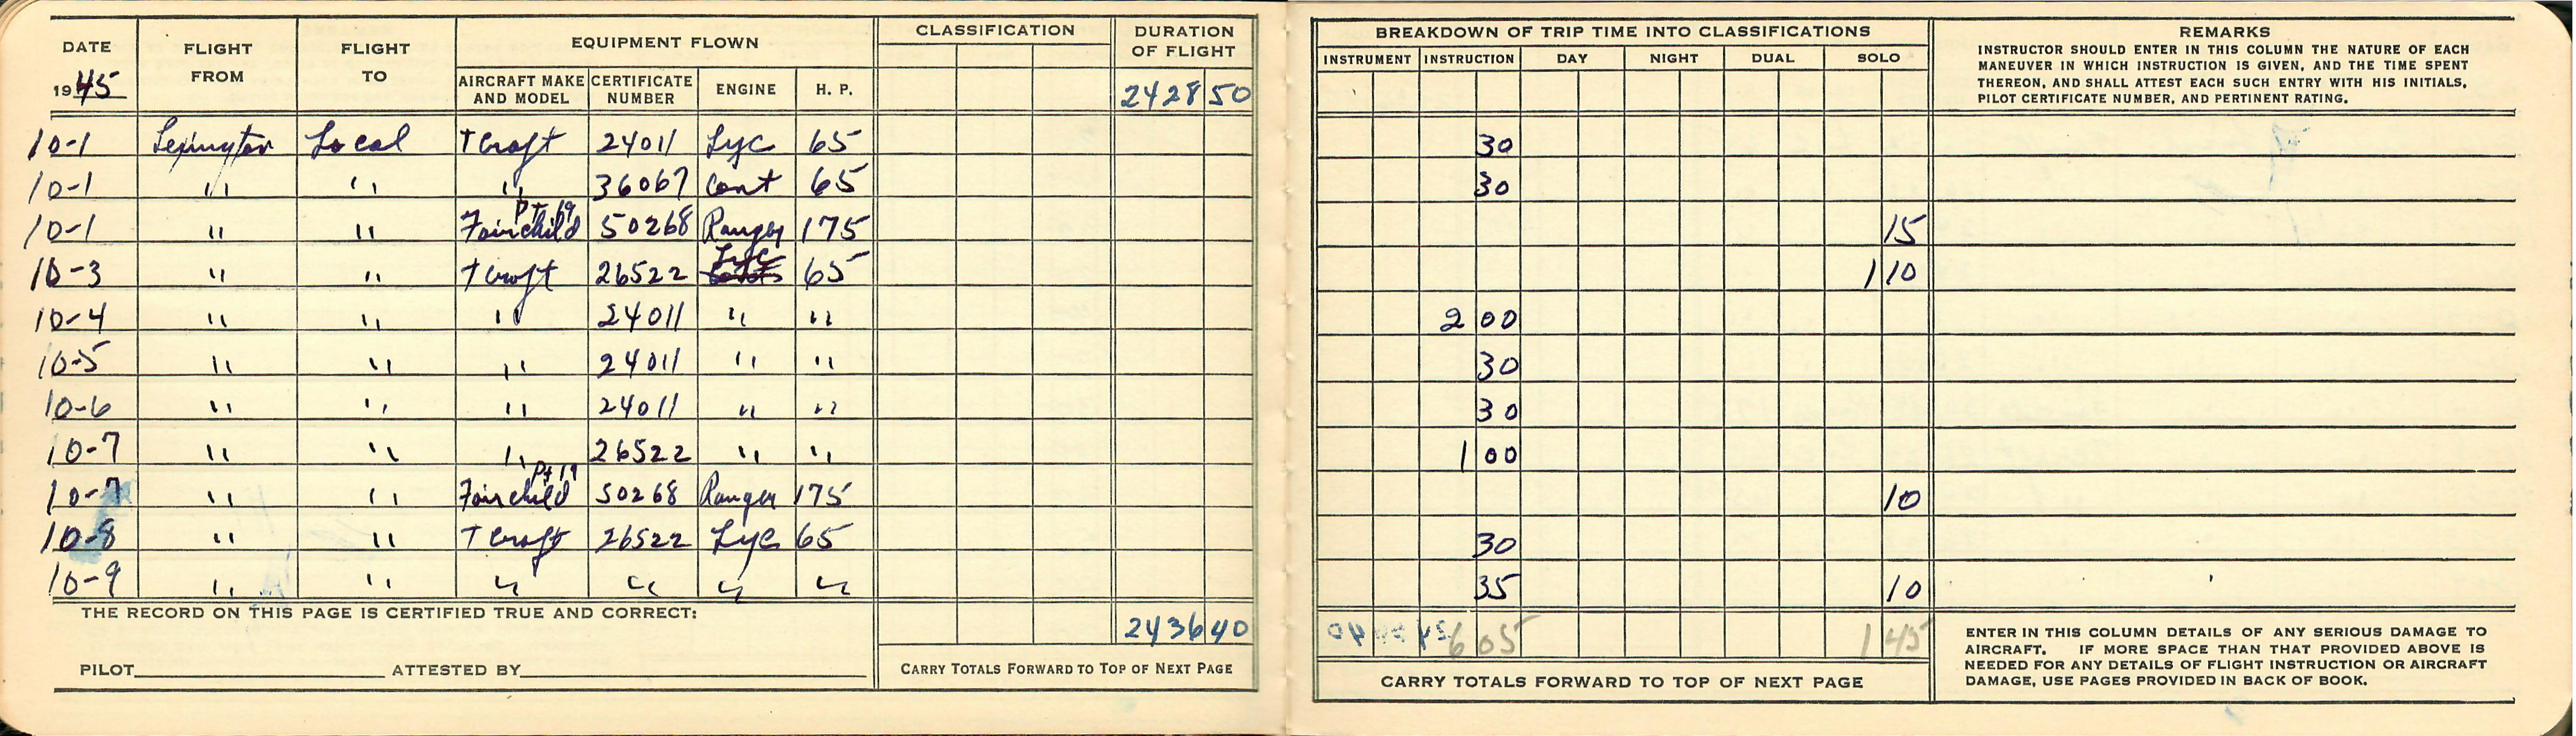 DATE FLIGHT FROM FLIGHT TO EQUIPMENT FLOWN CLASSIFICATION DURATION OF FLIGHT
1945 AIRCRAFT MAKE AND MODEL CERTIFICATE NUMBER ENGINE H. P. 2428 50
10-1 Lexington Local T Craft 24011 Lyc 65
10-1 " " " 36067 Cont 65
10-1 " " Fairchild PT 19 50268 Ranger 175
10-3 " " T Craft 26522 Lyc 65
10-4 " " " 24011 " "
10-5 " " " 24011 " "
10-6 " " " 24011 " "
10-7 " " " 26522 " "
10-7 " " Fairchild Pt 19 50268 Ranger 175
10-8 " " T Craft 26522 Lyc 65
10-9 " " " " " "
THE RECORD ON THIS PAGE IS CERTIFIED TRUE AND CORRECT:
2436 40
PILOT ATTESTED BY CARRY TOTALS FORWARD TO TOP OF NEXT PAGE
BREAKDOWN OF TRIP TIME INTO CLASSIFICATIONS
INSTRUMENT INSTRUCTION DAY NIGHT DUAL SOLO
REMARKS
INSTRUCTOR SHOULD ENTER IN THIS COLUMN THE NATURE OF EACH
MANEUVER IN WHICH INSTRUCTION IS GIVEN, AND THE TIME SPENT
THEREON, AND SHALL ATTEST EACH SUCH ENTRY WITH HIS INITIALS,
PILOT CERTIFICATE NUMBER, AND PERTINENT RATING.
30
30
15
1 10
2 00
30
30
1 00
10
30
35 10
6 05 1 45
CARRY TOTALS FORWARD TO TOP OF NEXT PAGE
ENTER IN THIS COLUMN DETAILS OF ANY SERIOUS DAMAGE TO
AIRCRAFT. IF MORE SPACE THAN THAT PROVIDED ABOVE IS
NEEDED FOR ANY DETAILS OF FLIGHT INSTRUCTION OR AIRCRAFT
DAMAGE, USE PAGES PROVIDED IN BACK OF BOOK.